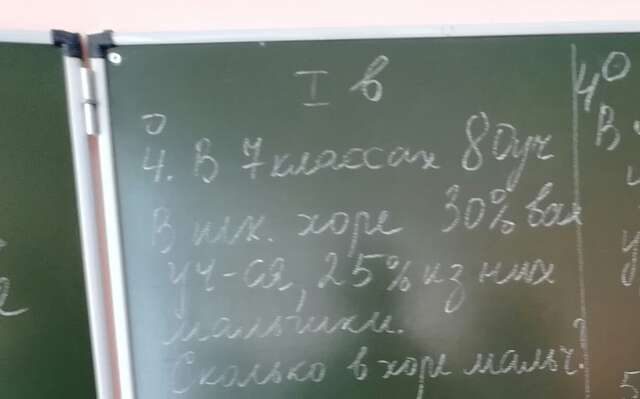 I в
4. В 7 классах 80 уч
В шк. хоре 30% всех
уч-ся, 25% из них
мальчики.
Сколько в хоре мальч.?
4⁰
В